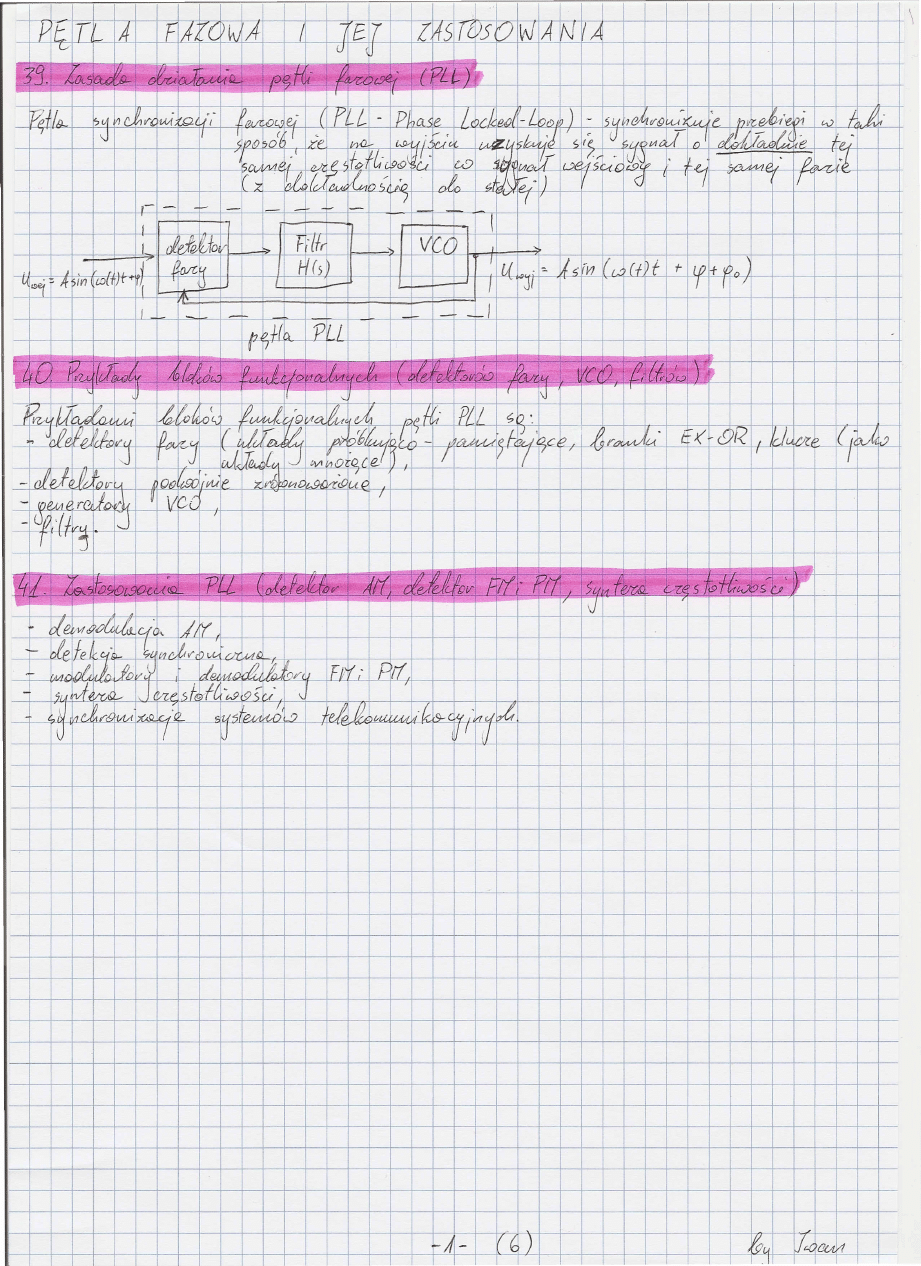 PĘTLA FAZOWA I JEJ ZASTOSOWANIA
39. Zasada działania pętli fazowej (PLL)
Pętla synchronizacji fazowej (PLL - Phase Locked-Loop) - synchronizuje przebiegi w taki
sposób, że na wyjściu uzyskuje się sygnał o dokładnie tej
samej częstotliwości co sygnał wejściowy i tej samej fazie
(z dokładnością do stałej)
detektor fazy
Filtr H(s)
VCO
Uwej = A sin(ω(t)t+φ)
Uwyj = A sin(ω(t)t + φ + φ₀)
pętla PLL
40. Przykłady bloków funkcjonalnych (detektorów fazy, VCO, filtrów)
Przykładami bloków funkcjonalnych pętli PLL są:
- detektory fazy (układy próbkująco-pamiętające, bramki EX-OR, klucze (jako
układy mnożące),
- detektory podwójnie zrównoważone,
- generatory VCO,
- filtry.
41. Zastosowania PLL (detektor AM, detektor FM i PM, synteza częstotliwości)
- demodulacja AM,
- detekcja synchroniczna,
- modulatory i demodulatory FM i PM,
- synteza częstotliwości,
- synchronizacja systemów telekomunikacyjnych.
-1- (6)
by Iwan